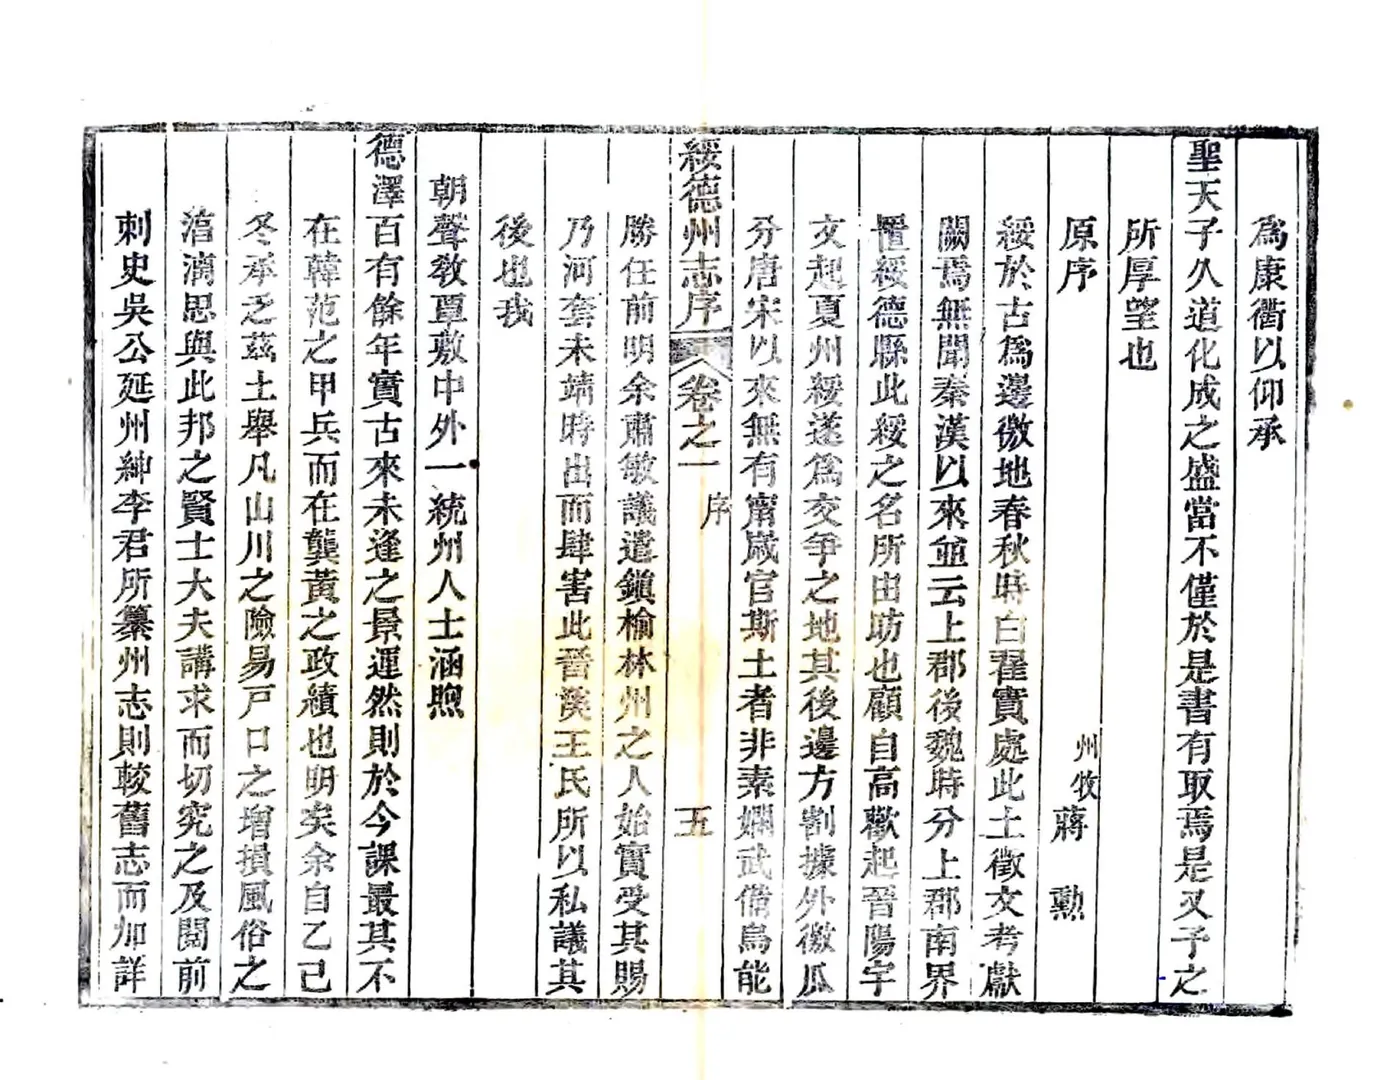 爲康衢以仰承
聖天子久道化成之盛當不僅於是書有取焉是又予之
所厚望也
原序
州牧蔣　勲
綏於古爲邊徼地春秋時白翟實處此土徵文考獻
闕焉無聞秦漢以來並云上郡後魏時分上郡南界
置綏德縣此綏之名所由昉也顧自高歡起晉陽宇
文起夏州綏遂爲交爭之地其後邊方割據外徼瓜
分唐宋以來無有甯歲官斯土者非素嫻武備烏能
綏德州志序 卷之一 序 五
勝任前明余肅敏議遣鎭榆林州之人始實受其賜
乃河套未靖時出而肆害此晉溪王氏所以私議其
後也我
朝聲敎覃敷中外一統州人士涵煦
德澤百有餘年實古來未逢之景運然則於今課最其不
在韓范之甲兵而在龔黃之政績也明矣余自乙己
冬承乏茲土舉凡山川之險易戶口之增損風俗之
湻漓思與此邦之賢士大夫講求而切究之及閱前
刺史吳公延州紳李君所纂州志則較舊志而加詳